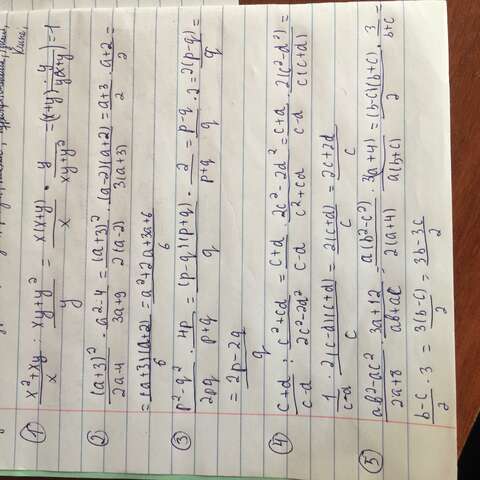 ① x²+xy/x : xy+y²/y = x(x+y)/x · y/xy+y² = (x+y) · y/y(x+y) = 1
② (a+3)²/2a-4 · a²-4/3a+9 = (a+3)²/2(a-2) · (a-2)(a+2)/3(a+3) = a+3/2 · a+2/3 =
= (a+3)(a+2)/6 = a²+2a+3a+6/6
③ p²-q²/2pq · 4p/p+q = (p-q)(p+q)/q · 2/p+q = p-q/q · 2 = 2(p-q)/q
= 2p-2q/q
④ c+d/c-d : c²+cd/2c²-2d² = c+d/c-d · 2c²-2d²/c²+cd = c+d/c-d · 2(c²-d²)/c(c+d) =
1/c-d · 2(c-d)(c+d)/c = 2(c+d)/c = 2c+2d/c
⑤ ab²-ac²/2a+8 · 3a+12/ab+ac = a(b²-c²)/2(a+4) · 3(a+4)/a(b+c) = (b-c)(b+c)/2 · 3/b+c
b-c/2 · 3 = 3(b-c)/2 = 3b-3c/2